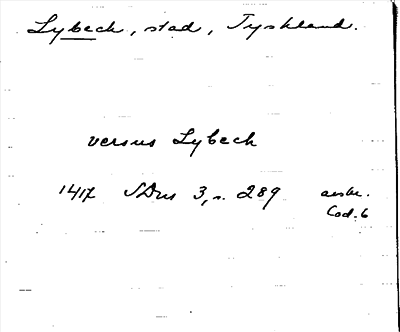 Lybeck, stad, Tyskland.
versus Lybeck
1417 SDns 3, s. 289 avskr.
Cod. 6